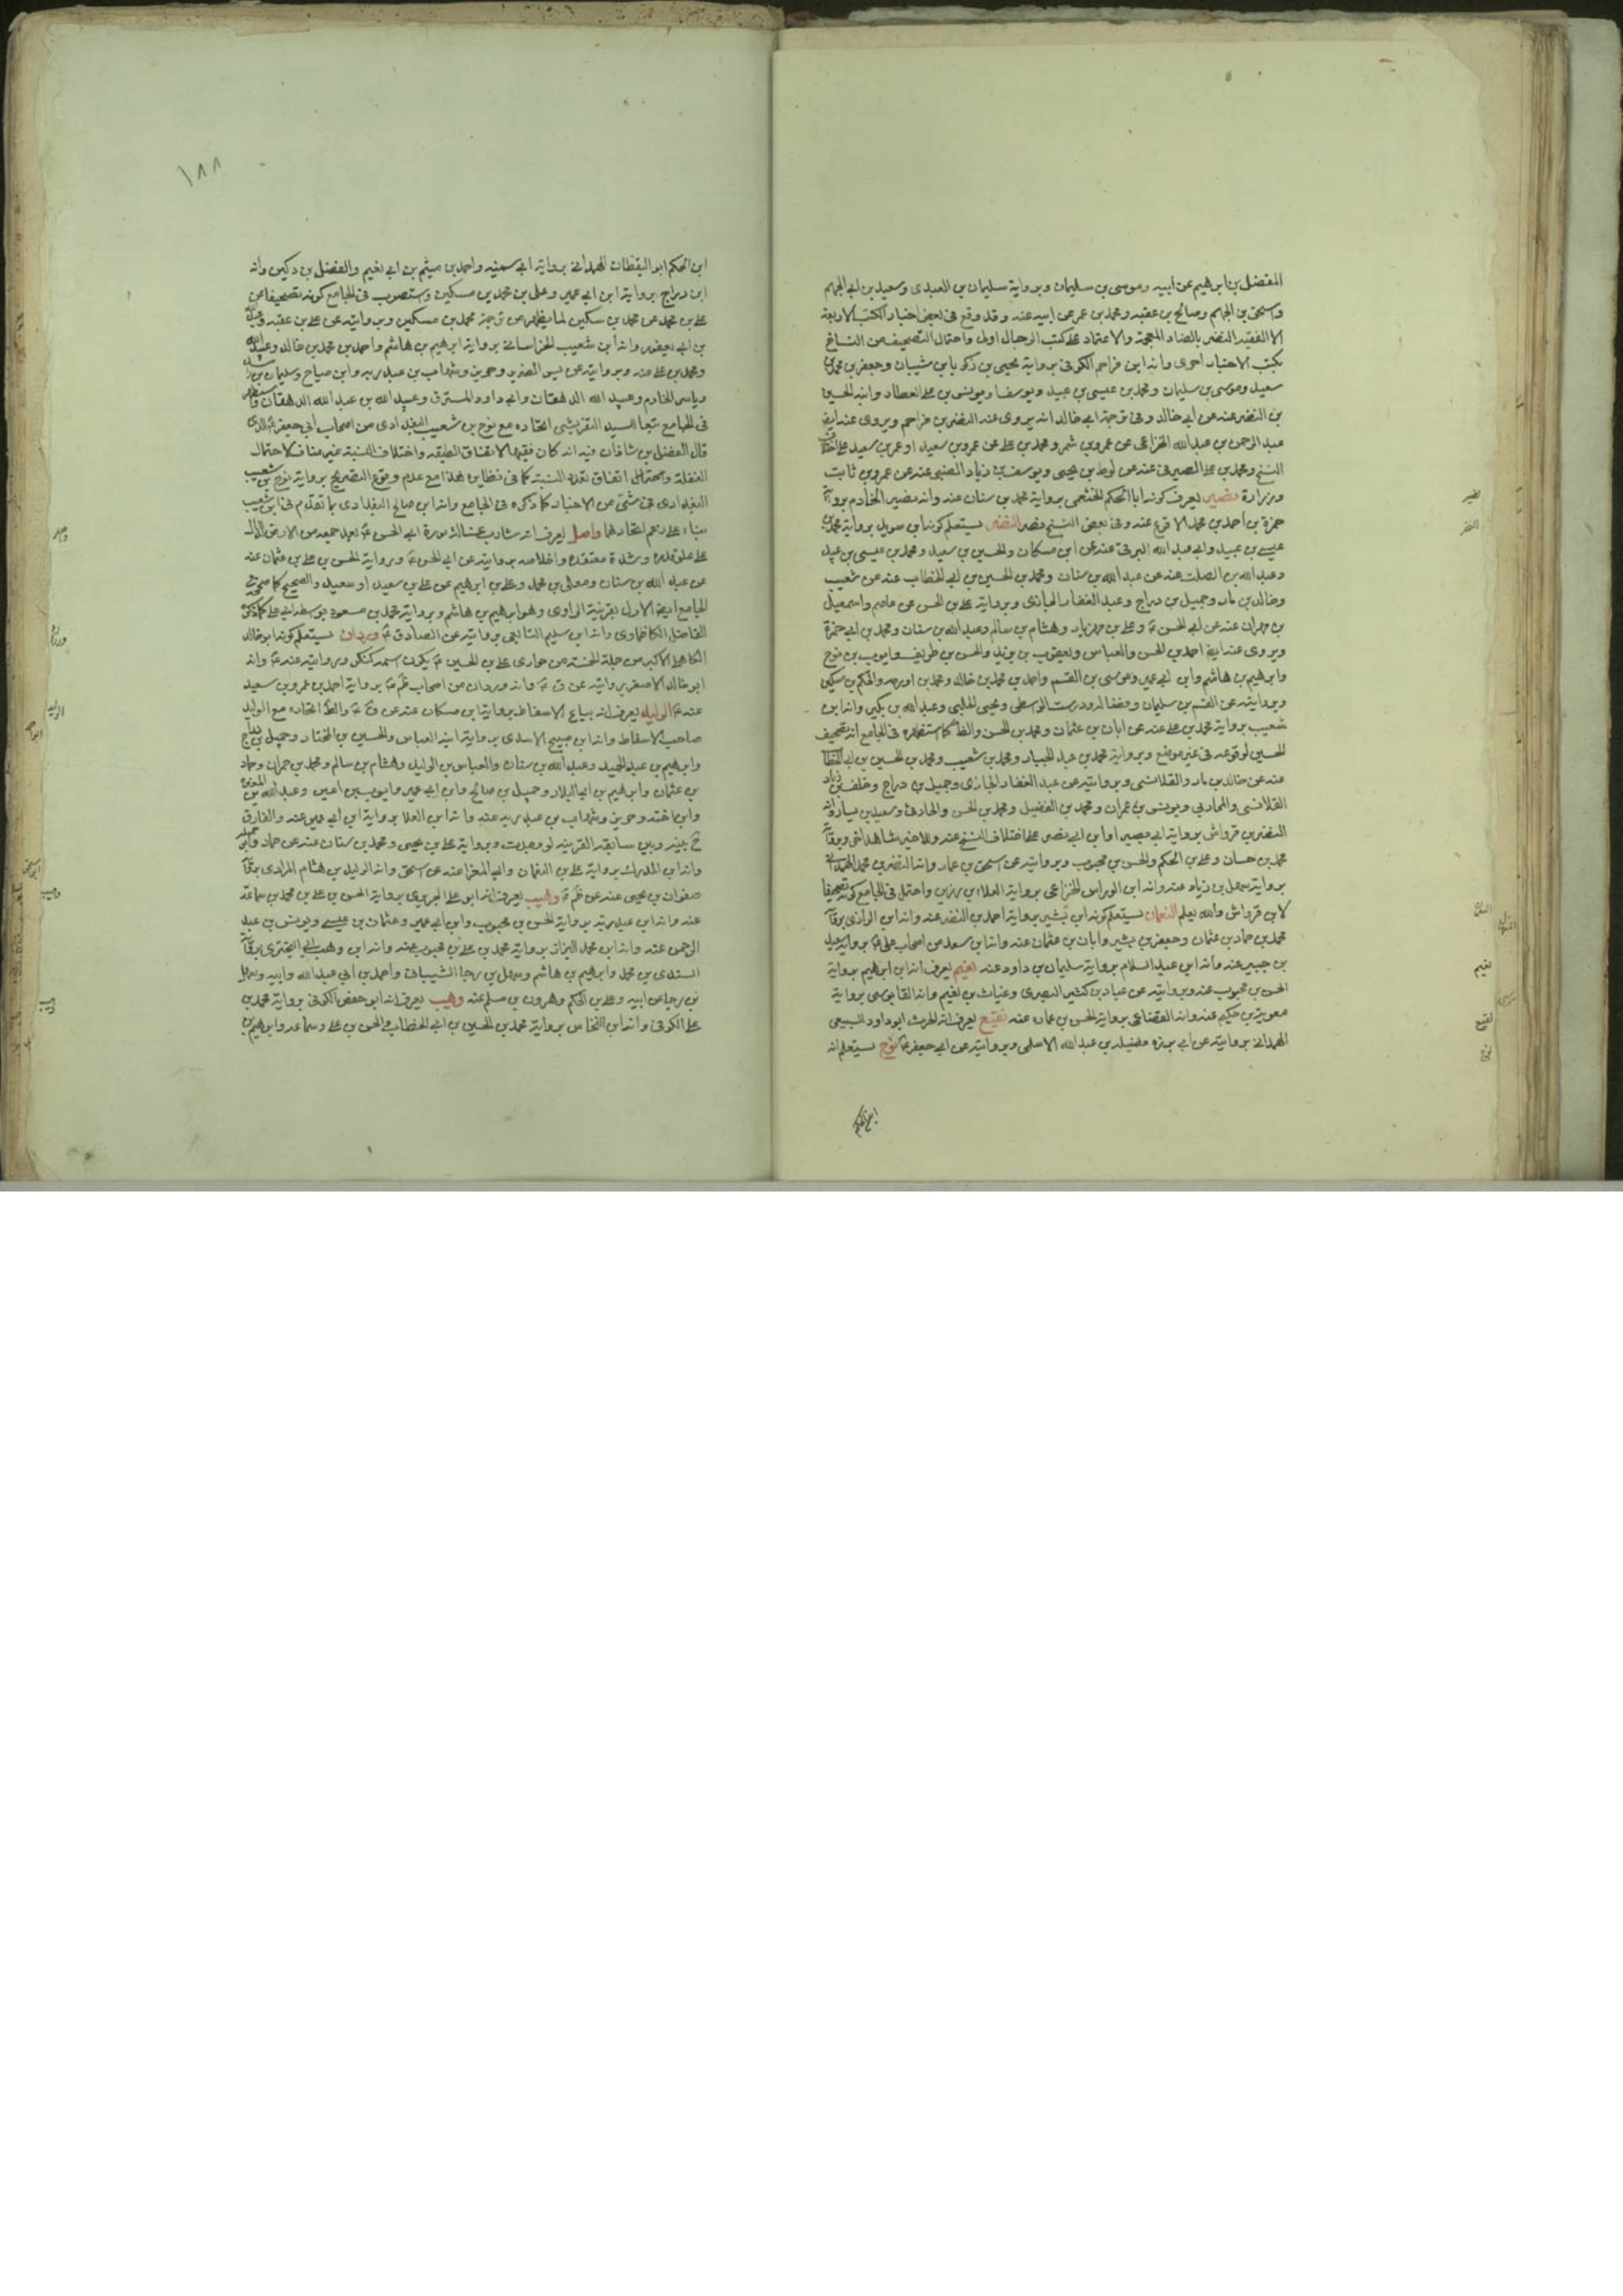 المفضل بن ابرهيم عن ابيه وموسى بن سليمان وبرواية سليمان بن العبدى وسعيد بن ابي الجهم
واسحق بن الجهم وصالح بن عقبه ومحمد بن عمر عن ابيه عنه وقد وقع فى بعض اخبار الكتب الاربعة
النضر بالضاد المعجمة والاعتماد على كتب الرجال اولى واحتمال التصحيف من النساخ
بكتب الاخبار احرى وانه ابن مزاحم الكوفى برواية يحيى بن زكريا بن شيبان وجعفر بن محمد بن
سعيد وموسى بن سليمان ومحمد بن عيسى بن عبيد ويونس بن على العطار وابنه الحسين
بن النضر عنه عن ابي خالد وفى ترجمة ابي خالد انه يروى عنه النضر بن مزاحم ويروى عنه ايض
عبد الرحمن بن عبد الله الخزاعى عن عمرو بن شمر ومحمد بن على عن عمرو بن سعيد او عمر بن سعيد على اختلاف
النسخ ومحمد بن على الصيرفى عنه عن لوط بن يحيى ويوسف بن زياد الضبى عنه عن عمرو بن ثابت
وزرارة نصير يعرف كونه ابا الحكم الخثعمى برواية محمد بن سنان عنه وانه نصير الخادم برواية
حمزة بن احمد بن محمد الاقرع عنه وفى بعض النسخ نصر النضر يستعلم كونه ابن سويد برواية محمد بن
عيسى بن عبيد وابي عبد الله البرقى عنه عن ابن مسكان والحسين بن سعيد ومحمد بن عيسى بن عبيد
وعبد الله بن الصلت عنه عن عبد الله بن سنان ومحمد بن الحسين بن ابي الخطاب عنه عن شعيب
وخالد بن ماد وجميل بن دراج وعبد الغفار الجازى وبرواية على بن الحسن عن عاصم واسمعيل
بن مهران عنه عن ابي الحسن ع وعلى بن مهزيار وهشام بن سالم وعبد الله بن سنان ومحمد بن ابي حمزة
ويروى عنه ايض احمد بن الحسن والعباس ويعقوب بن يزيد والحسن بن طريف وايوب بن نوح
وابرهيم بن هاشم وابن ابي عمير وموسى بن القسم واحمد بن محمد بن خالد ومحمد بن اورمه والحكم بن مسكين
وبروايته عن القسم بن سليمان ودرست الواسطى ويحيى الحلبى وعبد الله بن بكير وانه ابن
شعيب برواية محمد بن على عنه عن ابان بن عثمان ومحمد بن الحسن والظ كما استظهره فى الجامع انه تصحيف
الحسين لوقوعه فى غير موضع وبرواية محمد بن عبد الجبار ومحمد بن شعيب ومحمد بن الحسين بن ابي الخطاب
عنه عن خالد بن ماد والقلانسى وبروايته عن عبد الغفار الجازى وجميل بن دراج وخلف بن زياد
القلانسى والمحاربى ويونس بن عمران ومحمد بن الفضيل ومحمد بن الحسن والحارثى وسعيد بن يسار وانه
النضر بن قرواش برواية ابي بصير او ابن ابي نصر على اختلاف النسخ عنه وللاخير شاهد اتى وبرواية
محمد بن حسان وعلى بن الحكم والحسن بن محبوب وبروايته عن اسحق بن عمار وانه النضر بن محمد الهمدانى
برواية سهل بن زياد عنه وانه ابن الوراس الخزاعى برواية العلاء بن رزين واحتمل فى الجامع كونه تصحيفا
لابن قرواش والله يعلم النعمان يستعلم كونه ابن بشير برواية احمد بن النضر عنه وانه ابن الرازى برواية
محمد بن حماد بن عثمان وجعفر بن بشير وابان بن عثمان عنه وانه ابن سعد من اصحاب على ع برواية سعيد
بن جبير عنه وانه ابن عبد السلام برواية سليمان بن داود عنه نعيم يعرف انه ابن ابرهيم برواية
الحسن بن محبوب عنه وبروايته عن عباد بن كثير البصرى وغياث بن نعيم وانه القابوسى برواية
معوية بن حكيم عنه وانه القضاعى برواية الحسن بن عماره عنه نفيع يعرف انه الحرث ابو داود السبيعى
الهمدانى بروايته عن ابي برزه بن عبد الله الاسلمى وبروايته عن ابي جعفر ع نوح يستعلم انه
ابن الحكم
نصير
النضر
النعمان
نعيم
نفيع
نوح
١٨٨
ابن الحكم ابو اليقظان الهمدانى برواية ابي سمينه واحمد بن ميثم بن ابي نعيم والفضل بن دكين وانه
ابن دراج برواية ابن ابي عمير وعلى بن محمد بن مسكين واستصوب فى الجامع كونه تصحيفا عن
على بن محمد عن محمد بن سكين لما يظهر من ترجمة محمد بن مسكين وبروايته عن على بن عقبه وعبد الله
بن ابي يعفور وانه ابن شعيب الخراسانى برواية ابرهيم بن هاشم واحمد بن محمد بن خالد وعبد الله
ومحمد بن على عنه وبروايته عن يس الضرير وحريز وشهاب بن عبد ربه وابن صياح وسليمان بن
وياسر الخادم وعبيد الله الدهقان وابي داود المسترق وعبيد الله بن عبد الله الدهقان
فى الجامع تبعا للسيد التفرشى اتحاده مع نوح بن شعيب البغدادى من اصحاب ابي جعفر ع الذى
قال الفضل بن شاذان فيه انه كان فقيها لاتفاق الطبقه واختلاف النسبة غير مناف لاحتمال
الغفلة واحتمال اتفاق تعدد النسبة كما فى نظايره هذا مع عدم وقوع التصريح برواية نوح بن شعيب
البغدادى فى شئى من الاخبار كما ذكره فى الجامع وانه ابن صالح البغدادى بما تقدم فى ابن شعيب
بناء على زعم اتحادهما واصل يعرف انه ابي الحسن ع بعد جمعه من الارض الدال
على علو قدره وشدة معتقده واخلاصه بروايته عن ابي الحسن ع وبرواية الحسن بن على بن عثمان عنه
عن عبد الله بن سنان ومعلى بن محمد وعلى بن ابرهيم عن على بن سعيد او سعيد والصحيح كما صححه فى
الجامع ايض الاول بقرينة الراوى وهو ابرهيم بن هاشم وبرواية محمد بن مسعود بتوسط ابي على كما ذكره
الفاضل الكاظماوى وانه ابن سليم التابعى بروايته عن الصادق ع وردان يستعلم كونه ابو خالد
الكابلى الاكبر من جملة الخمسة من حوارى على بن الحسين ع بكون اسمه كنكر وبروايته عنه ع وانه
ابو خالد الاصغر بروايته عن ق ع وانه وردان من اصحاب ظم ع برواية احمد بن عمرو بن سعيد
عنه ع الوليد يعرف انه بياع الاسفاط برواية ابن مسكان عنه عن ق ع والظ اتحاده مع الوليد
صاحب الاسفاط وانه ابن صبيح الاسدى برواية ابنه العباس والحسين بن المختار وجميل بن دراج
وابرهيم بن عبد الحميد وعبد الله بن سنان والعباس بن الوليد وهشام بن سالم ومحمد بن حمران وحماد
بن عثمان وابرهيم بن ابي البلاد وجميل بن صالح وابن ابي عمير وايوب بن اعين وعبد الله بن المغيرة
وابن اخته وحريز وشهاب بن عبد ربه عنه وانه ابن العلا برواية ابن ابي عمير عنه والفارق
ح بينه وبين سابقه القرينه لو وجدت وبرواية على بن يحيى ومحمد بن سنان عنه عن حماد
وانه ابن المدرك برواية على بن النعمان وابي المغرا عنه عن اسحق وانه الوليد بن هشام المرادى برواية
صفوان بن يحيى عنه عن ظم ع وهيب يعرف انه ابو على الجريرى برواية الحسن بن على بن محمد بن سماعه
عنه وانه ابن عبد ربه برواية الحسن بن محبوب وابن ابي عمير وعثمان بن عيسى ويونس بن عبد
الرحمن عنه وانه ابن محمد البزاز برواية محمد بن على بن محبوب عنه وانه ابن وهب ابي البخترى برواية
السندى بن محمد وابرهيم بن هاشم وسهل بن رجا الشيبانى واحمد بن ابي عبد الله وابيه وسهل
بن رجا عن ابيه وعلى بن الحكم وهرون بن مسلم عنه وهيب يعرف انه ابو حفص الكوفى برواية محمد بن
على الكوفى وانه ابن النحاس برواية محمد بن الحسين بن ابي الخطاب والحسن بن على وسماعه وابرهيم بن
واصل
وردان
الوليد
وهب
وهيب